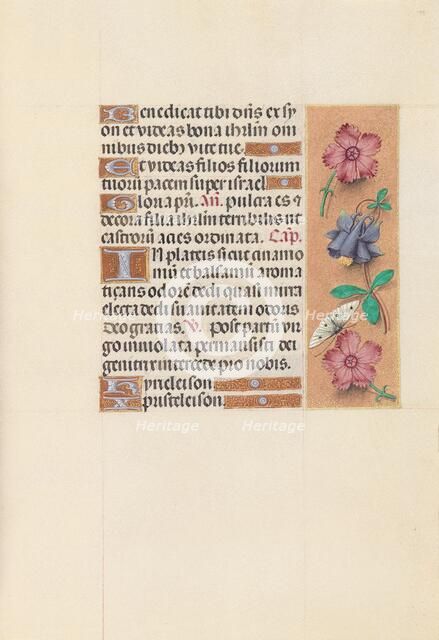 Benedicat tibi dn̄s ex sy
on et videas bona ihrl̄m om
nibus dieb9 vite tue.
Et videas filios filiorum
tuorū pacem super israel.
Gloria pr̄i. An̄. pulcra es 7
decora filia ihrl̄m terribilis ut
castrorū acies ordinata. Cap̄.
IN plateis sicut cinamo
mū et balsamū aroma
tiçans odorē dedi quasi mirra
electa dedi suavitatem odoris
Deo gratias. V̄. post partū vir
go inviolata permansisti dei
genitrix intercede pro nobis.
Kyrieleison
Xp̄isteleison
Heritage
Heritage
Heritage
Heritage
Heritage
Heritage